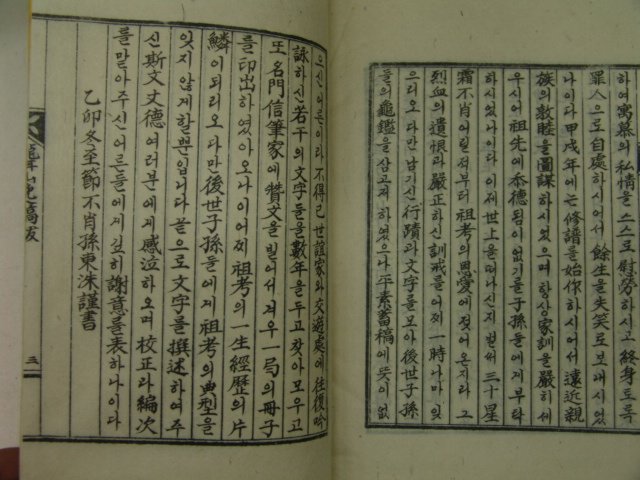 하여 寓慕의 私情을 스스로 慰勞하시고 終身토록
罪人으로 自處하시어서 餘生을 失笑로 보내시었
나이다 甲戌年에는 修譜를 始作하시어서 遠近親
族의 敦睦을 圖謀하시었으며 항상 家訓을 嚴히 세
우시어 祖先에 忝德됨이 없기를 子孫들에게 부탁
하시었나이다 이제 世上을 떠나신지 벌써 三十星
霜 不肖 어릴적부터 祖考의 恩愛에 젖어 온지라 그
烈血의 遺恨과 嚴正하신 訓戒를 어찌 一時나마 잊
으리오 다만 남기신 行蹟과 文字를 모아 後世子孫
들의 龜鑑을 삼고저 하였으나 平素 蓄稿에 뜻이 없
으신 어른이라 不得已 世誼家와 交遊處에 往復 吟
詠하신 若干의 文字들을 數年을 두고 찾아모우고
또 名門 信筆家에 贊文을 빌어서 겨우 一局의 冊子
를 印出하였아오나 이어찌 祖考의 一生 經歷의 片
鱗이 되리오 다만 後世子孫들에게 祖考의 典型을
잊지 않게 할뿐입니다 끝으로 文字를 撰述하여 주
신 斯文丈德 여러분에게 感泣하오며 校正과 編次
를 말아 주신 어른들에게 깊히 謝意를 表하나이다
乙卯 冬至節 不肖孫 東洙 謹書
三